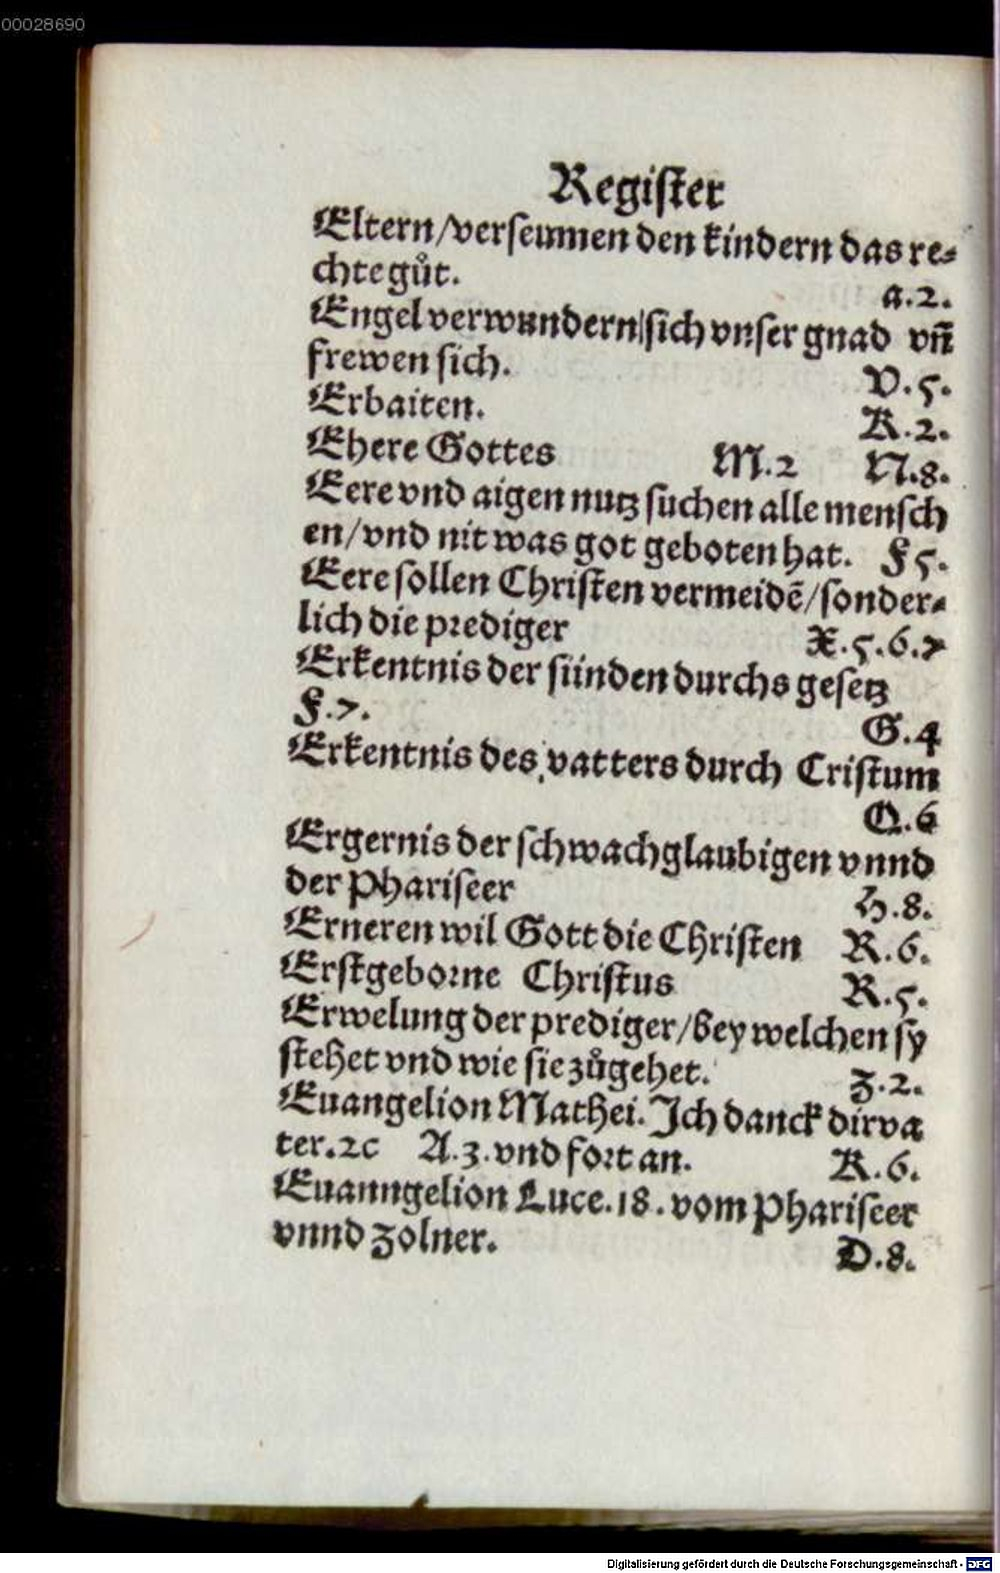 00028690
Register
Eltern/verseumen den kindern das re⸗
chte gůt. a.2.
Engel verwundern|sich vnser gnad vñ
frewen sich. V.5.
Erbaiten. K.2.
Ehere Gottes M.2 N.8.
Eere vnd aigen nutz suchen alle mensch
en/vnd nit was got geboten hat. F5.
Eere sollen Christen vermeidẽ/sonder⸗
lich die prediger X.5.6.7
Erkentnis der sünden durchs gesetz
F.7. G.4
Erkentnis des vatters durch Cristum
Q.6
Ergernis der schwachglaubigen vnnd
der Phariseer H.8.
Erneren wil Gott die Christen R.6.
Erstgeborne Christus R.5.
Erwelung der prediger/bey welchen sy
stehet vnd wie sie zůgehet. Z.2.
Euangelion Mathei. Ich danck dir va
ter.ꝛc A.3.vnd fort an. K.6.
Euanngelion Luce.18.vom Phariseer
vnnd zolner. D.8.
Digitalisierung gefördert durch die Deutsche Forschungsgemeinschaft - DFG